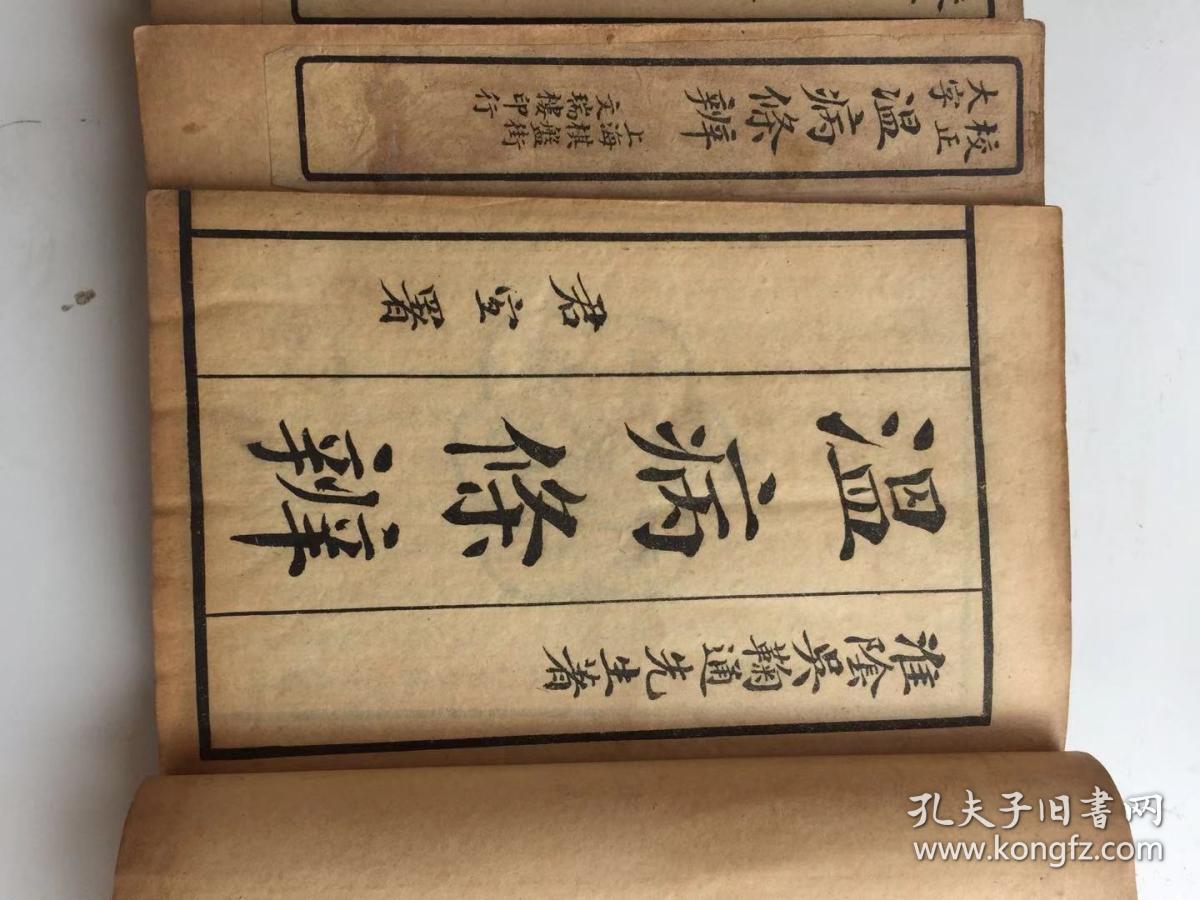 校正
大字
溫病條辨
上海棋盤街
文瑞樓印行
淮陰吳鞠通先生著
溫病條辨
君署
孔夫子旧书网
www.kongfz.com